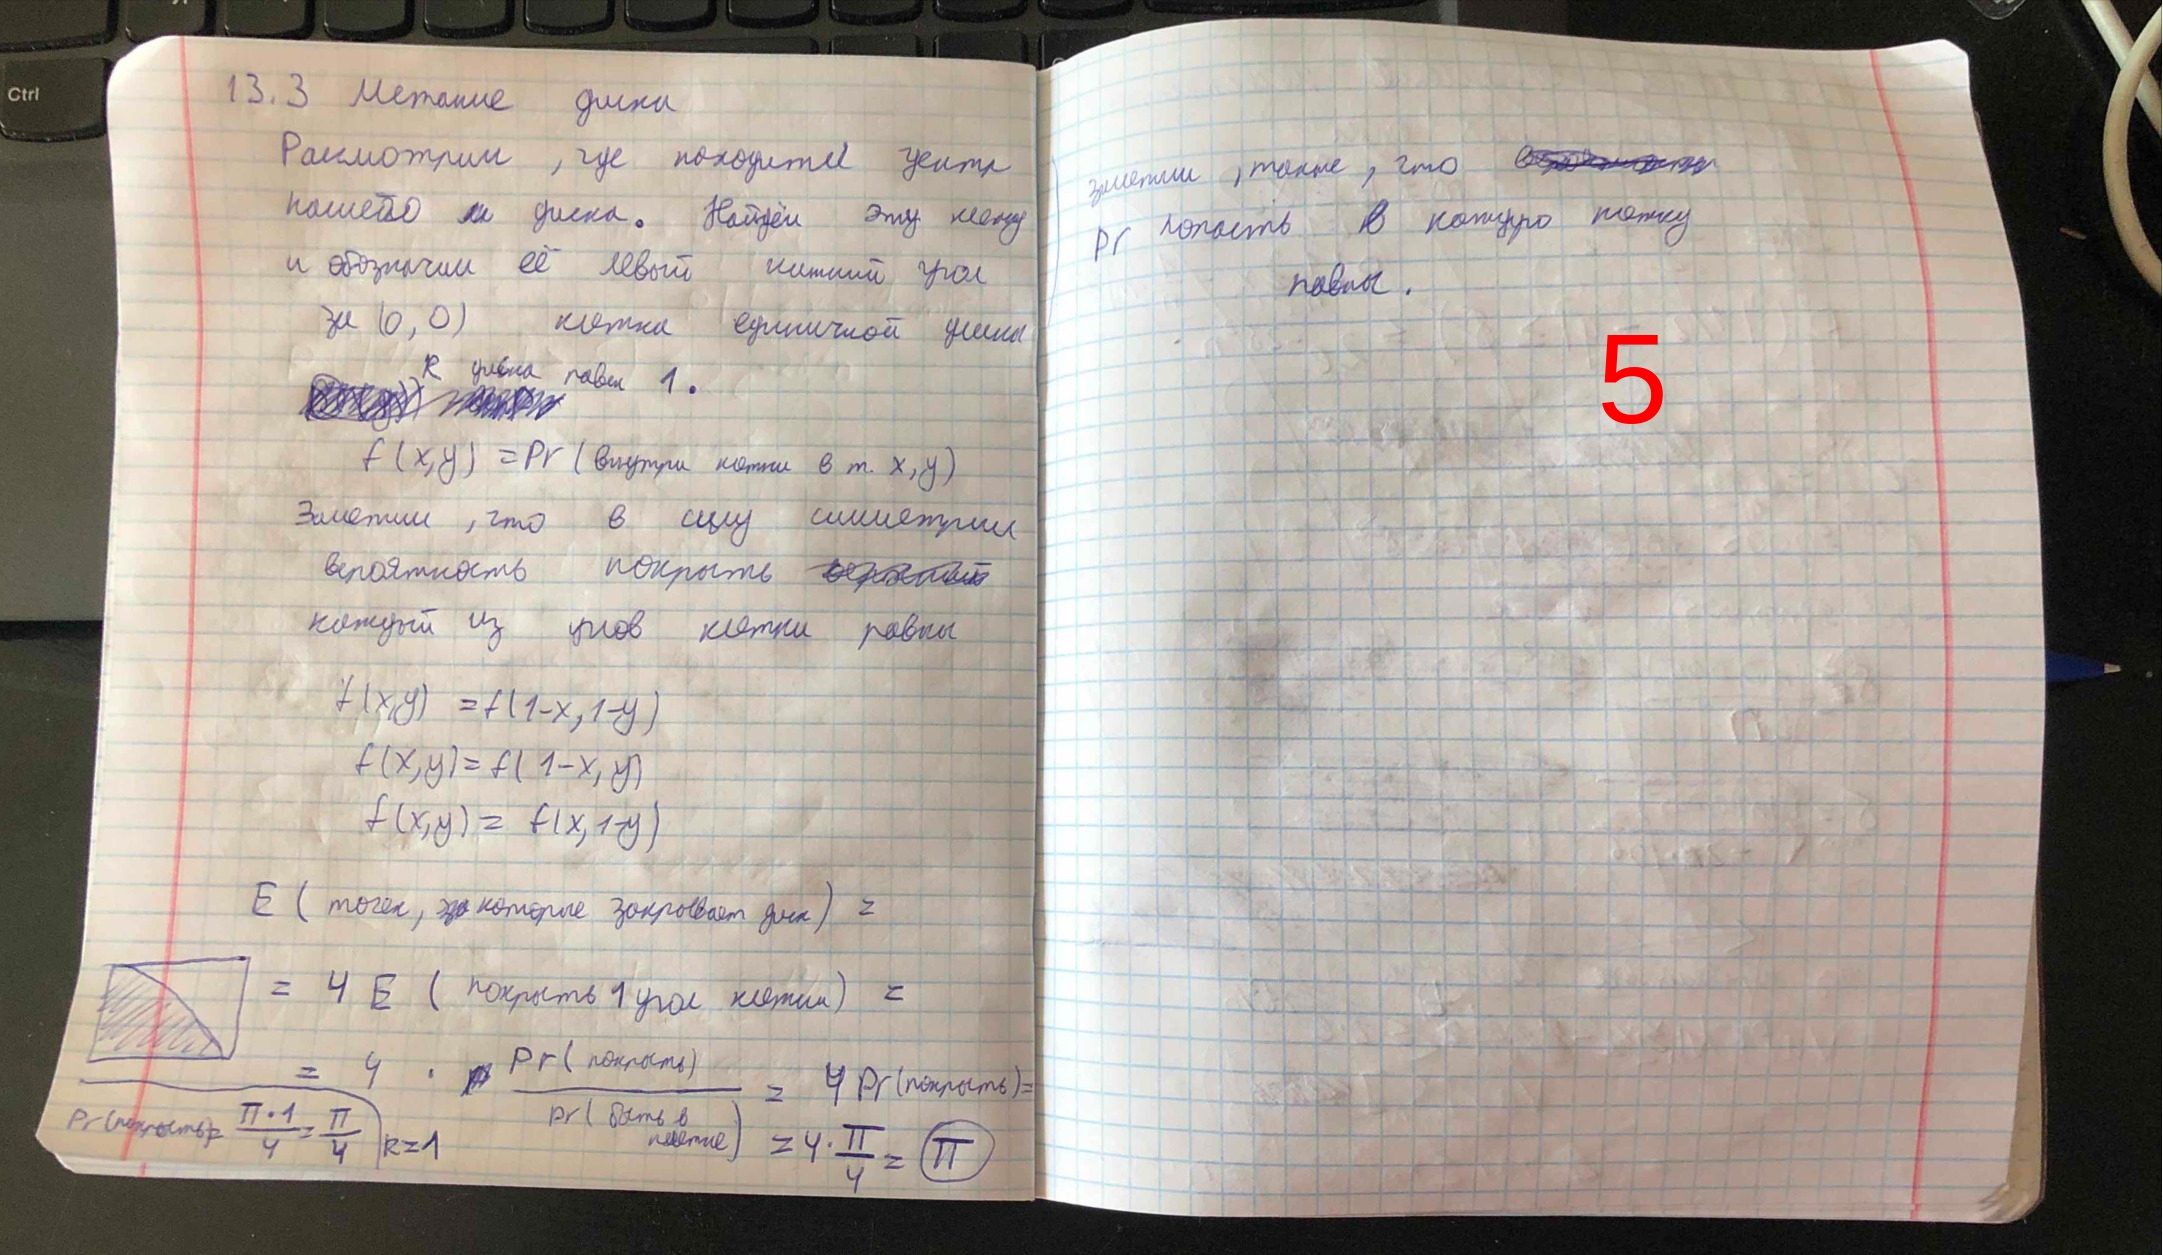 Ctrl
13.3 Метание диска
Рассмотрим, где находится центр
нашего диска. Найдём эту клетку
и обозначим её левый нижний угол
за (0, 0) клетка единичной длины
R диска равен 1.
f(x,y) = Pr (внутри клетки в т. x, y)
Заметим, что в силу симметрии
вероятность покрыть
каждый из углов клетки равны
f(x,y) = f(1-x, 1-y)
f(x,y) = f(1-x, y)
f(x,y) = f(x, 1-y)
E ( точек, которые закрывает диск) =
= 4 E ( покрыть 1 угол клетки) =
= 4 · Pr(покрыть) / Pr(быть в клетке) = 4 Pr(покрыть) =
= 4 · π/4 = π
Pr(покрыть) = π·1/4 = π/4
R=1
заметим, также, что
Pr попасть в каждую клетку
равны.
5